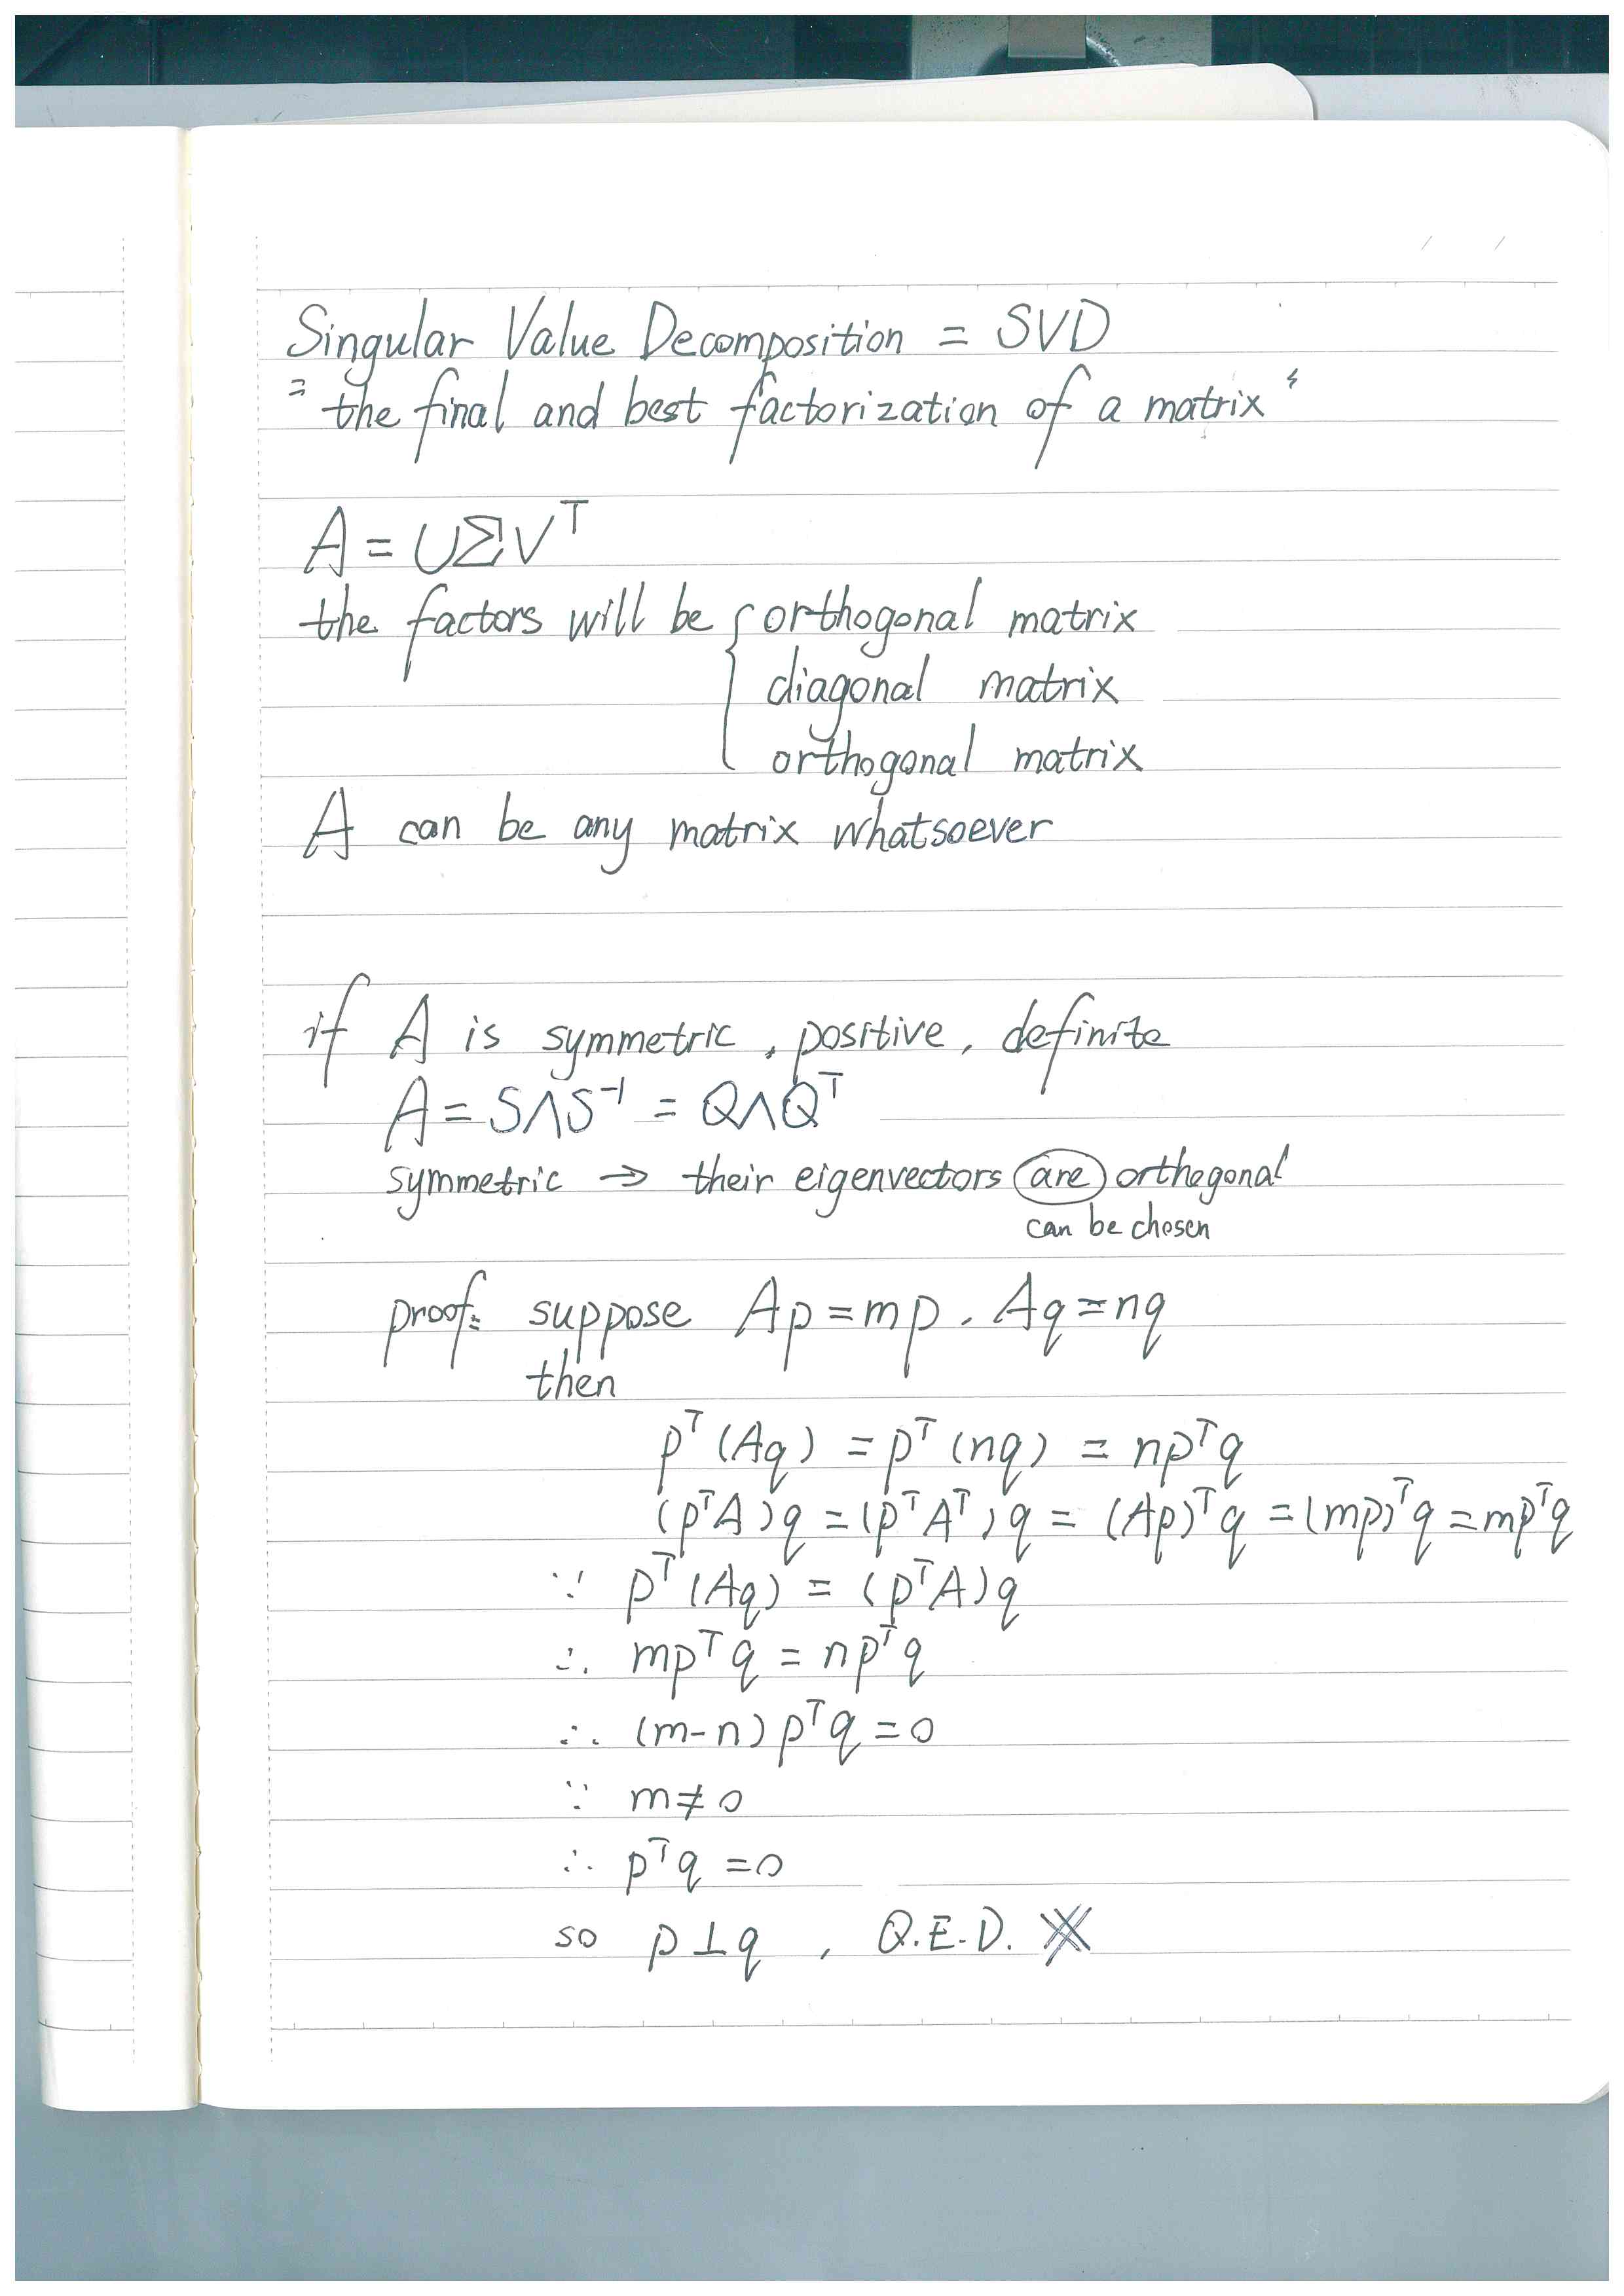 Singular Value Decomposition = SVD
"the final and best factorization of a matrix"
A = UΣVᵀ
the factors will be { orthogonal matrix
diagonal matrix
orthogonal matrix
A can be any matrix whatsoever
if A is symmetric, positive, definite
A = SΛS⁻¹ = QΛQᵀ
symmetric → their eigenvectors are orthogonal
can be chosen
proof: suppose Ap = mp, Aq = nq
then
pᵀ(Aq) = pᵀ(nq) = npᵀq
(pᵀA)q = (pᵀAᵀ)q = (Ap)ᵀq = (mp)ᵀq = mpᵀq
∵ pᵀ(Aq) = (pᵀA)q
∴ mpᵀq = npᵀq
∴ (m-n)pᵀq = 0
∵ m ≠ 0
∴ pᵀq = 0
so p⊥q , Q.E.D. ※